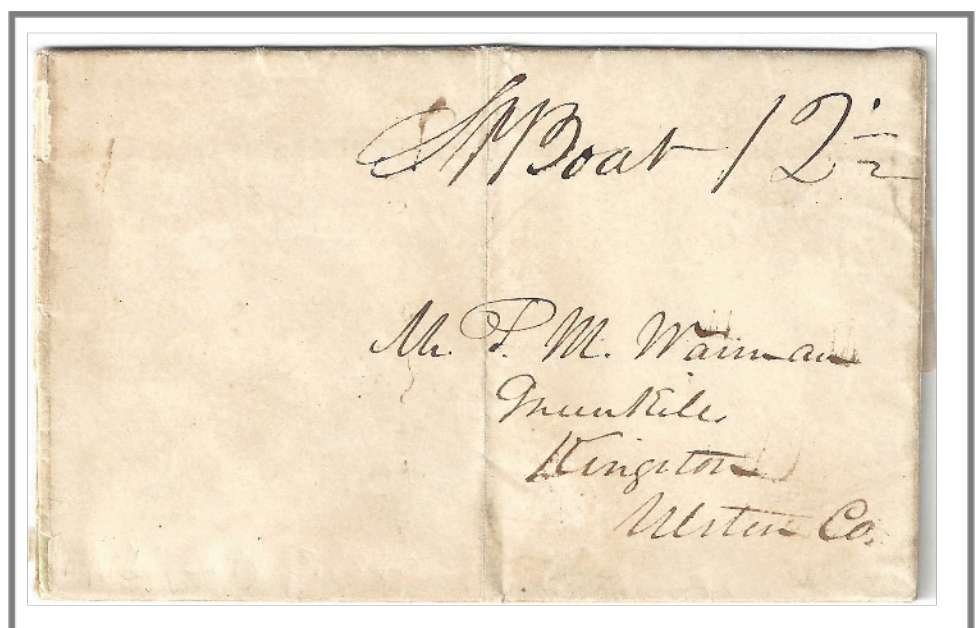 St Boat 12 1/2
Mr. P. M. Wainman
Kingston
Ulster Co.